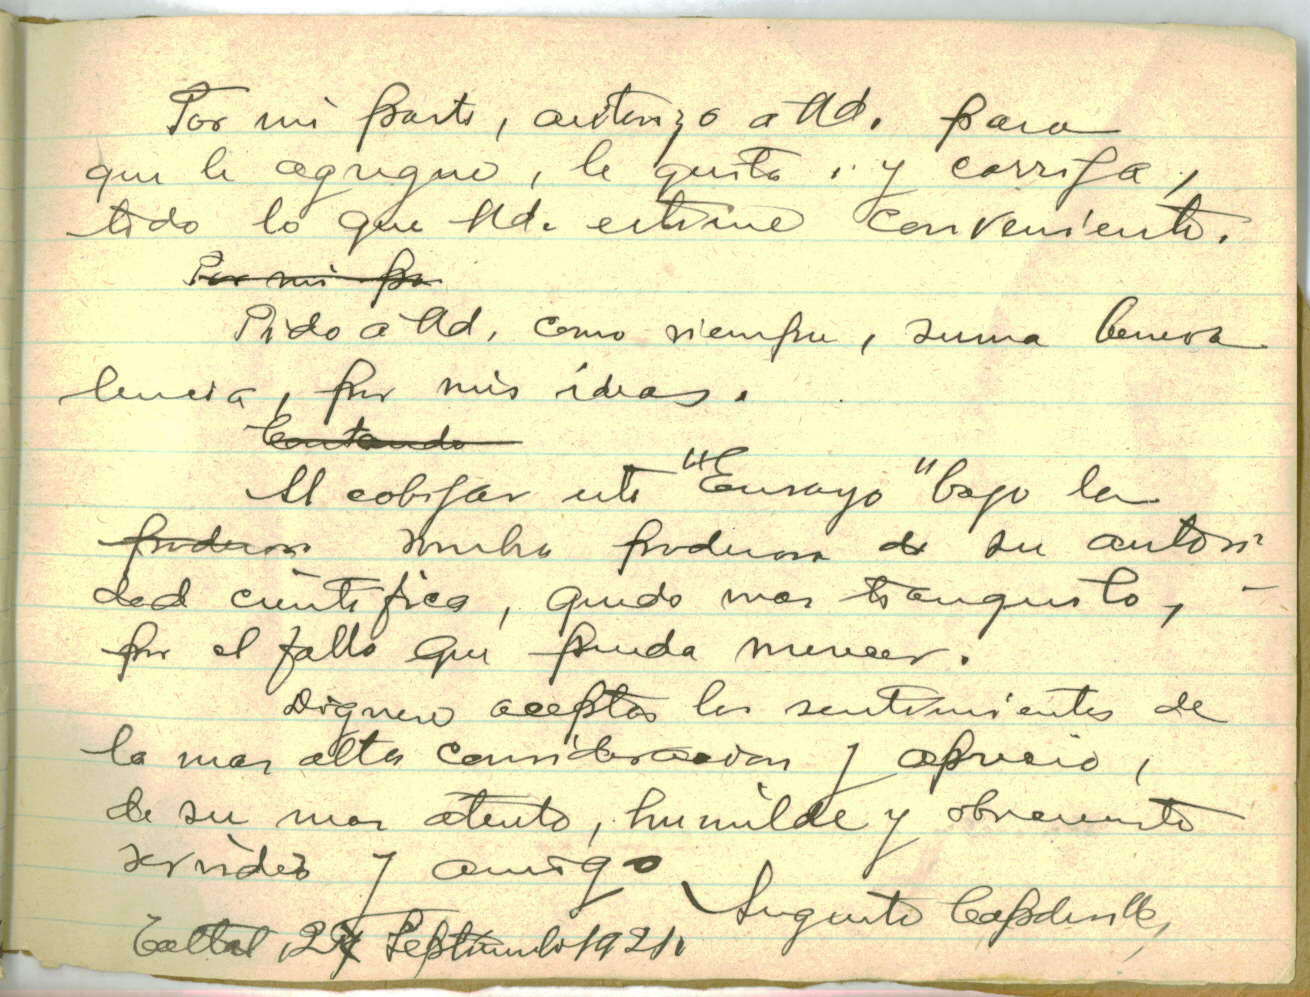 Por mi parte, autorizo a Ud. para
que le agregue, le quite, y corrija,
todo lo que Ud. estime conveniente.
Por mi pa
Pido a Ud. como siempre, suma benevo
lencia, por mis ideas.
Contando
Al cobijar este "Ensayo" bajo la
poderosa sombra poderosa de su autori-
dad científica, quedo mas tranquilo,
por el fallo que pueda merecer.
Dignese aceptar los sentimientos de
la mas alta consideracion y aprecio,
de su mas atento, humilde y obsecuente
servidor y amigo
Augusto Capdeville,
Taltal, Septiembre 1921.